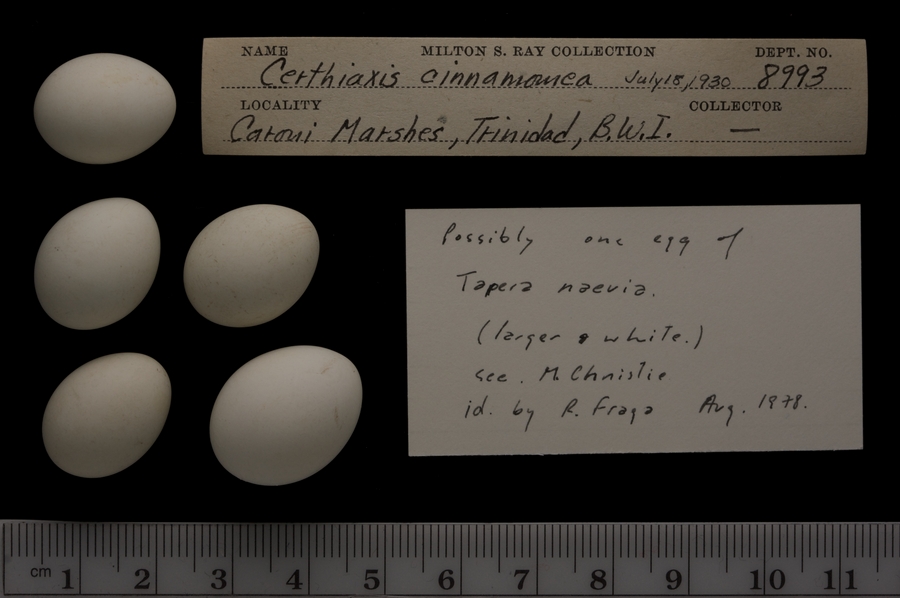 NAME MILTON S. RAY COLLECTION DEPT. NO.
Certhiaxis cinnamomea July 18, 1930 8993
LOCALITY COLLECTOR
Caroni Marshes, Trinidad, B.W.I. —
Possibly one egg of
Tapera naevia.
(larger & white.)
see. M. Christie
id. by R. Fraga Aug. 1978.
cm 1 2 3 4 5 6 7 8 9 10 11